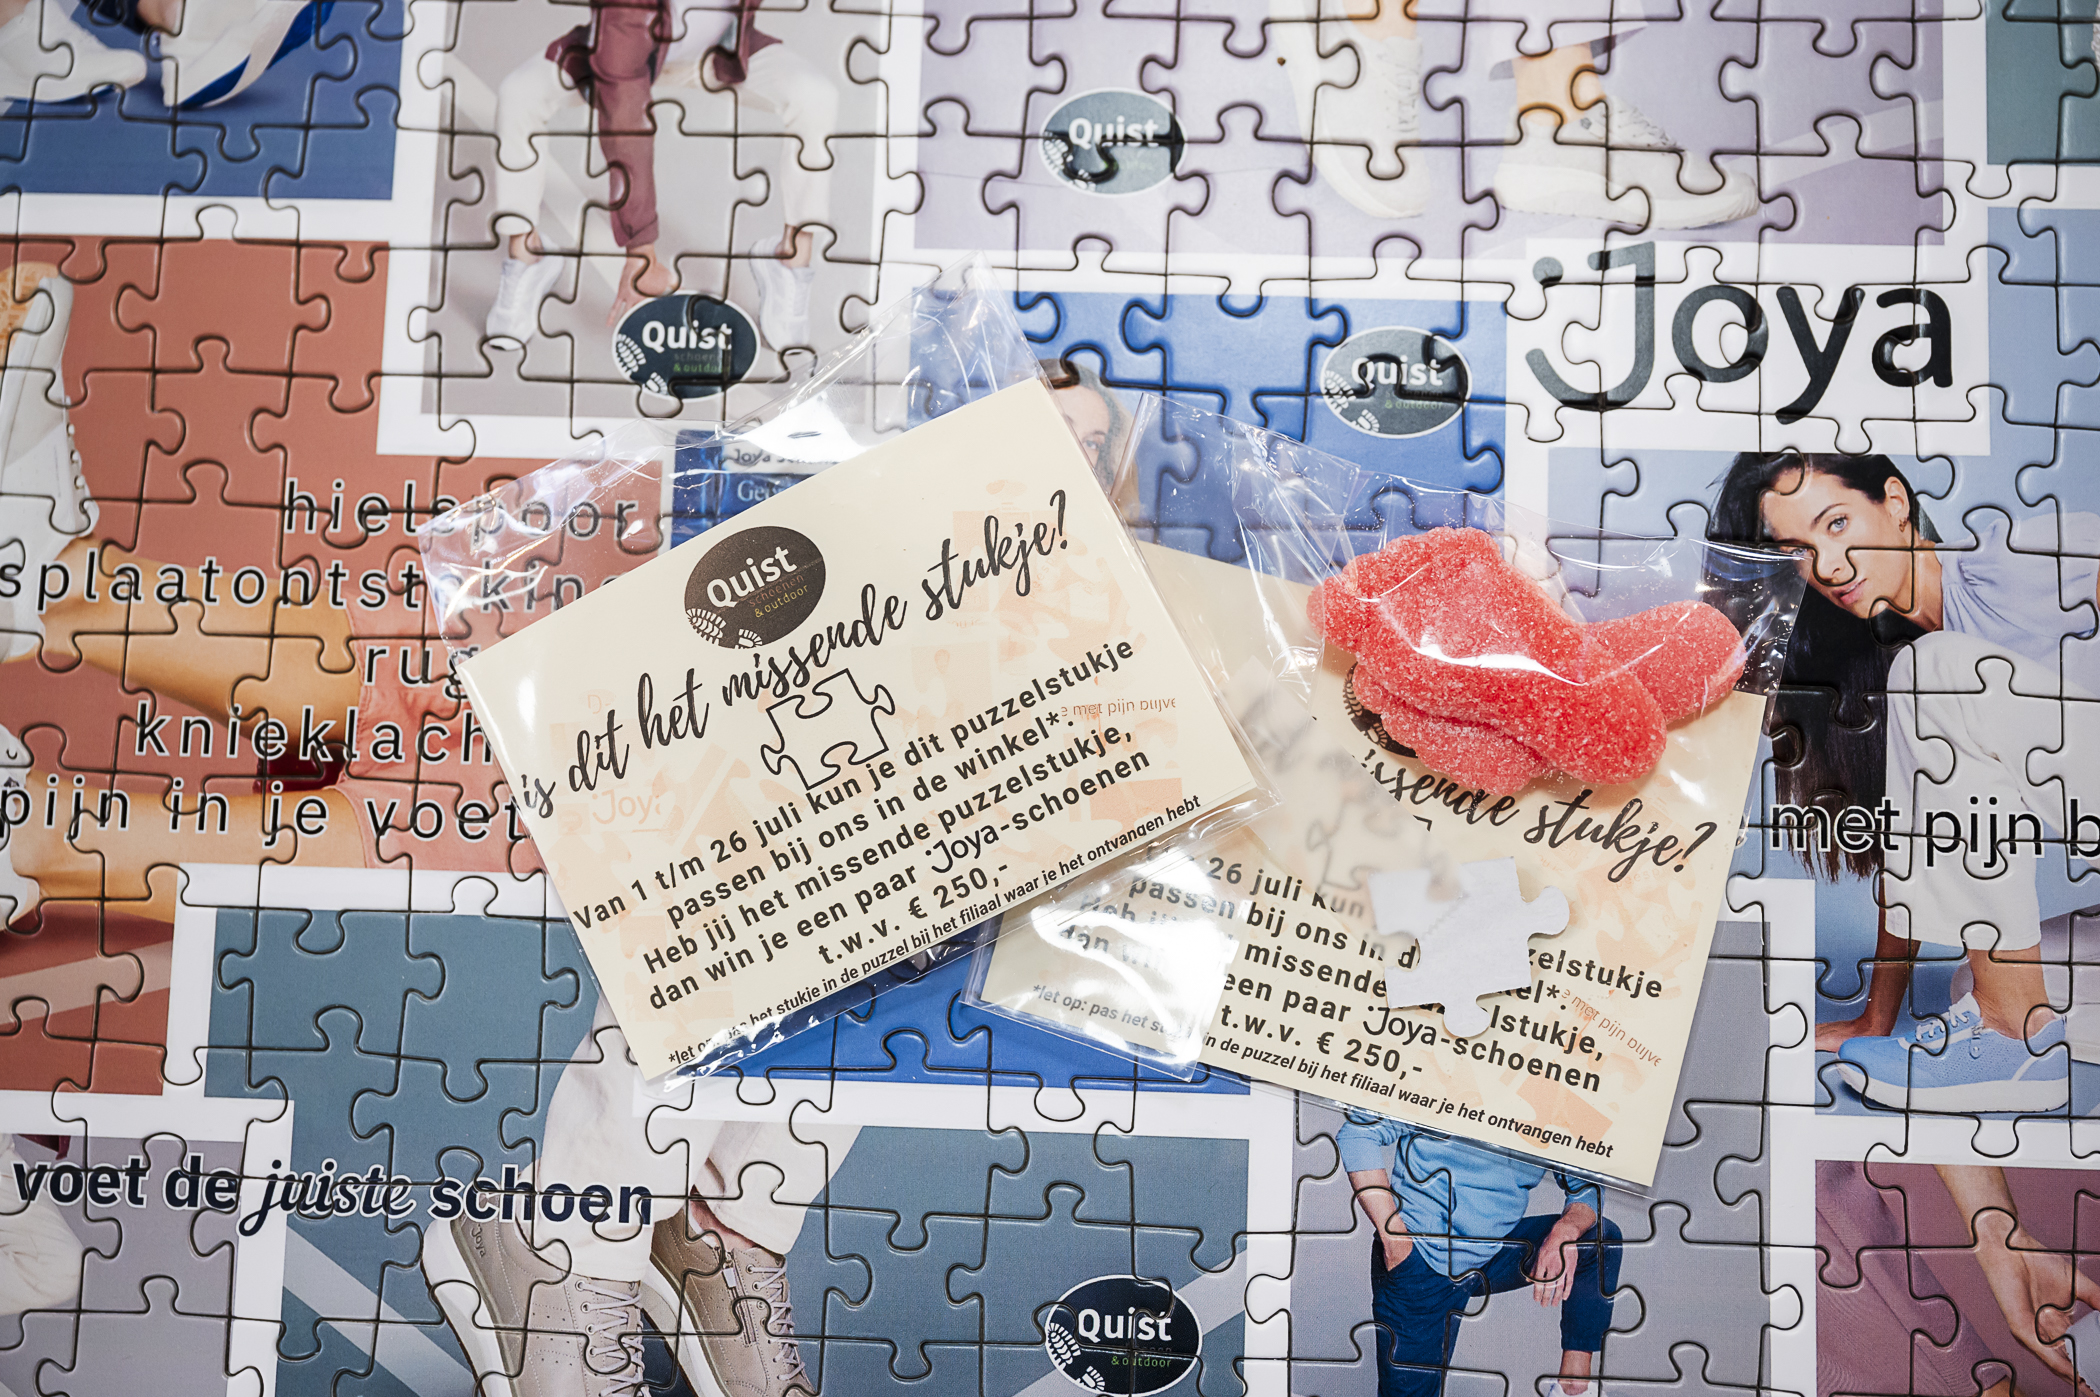 Quist
Quist
schoenen
& outdoor
Quist
& outdoor
Joya
hielspoor
rug
pijn in je voet
met pijn b
Quist
schoenen
& outdoor
is dit het missende stukje?
Van 1 t/m 26 juli kun je dit puzzelstukje
passen bij ons in de winkel*.
Heb jij het missende puzzelstukje,
dan win je een paar Joya-schoenen
t.w.v. € 250,-
het stukje in de puzzel bij het filiaal waar je het ontvangen hebt
e met pijn blijve
Joya
ssende stukje?
26 juli kun
passen bij ons in d zelstukje
missende lstukje,
een paar Joya-schoenen
t.w.v. € 250,-
*let op: pas het stu in de puzzel bij het filiaal waar je het ontvangen hebt
e met pijn blijve
voet de juiste schoen
Joya
Quist
& outdoor